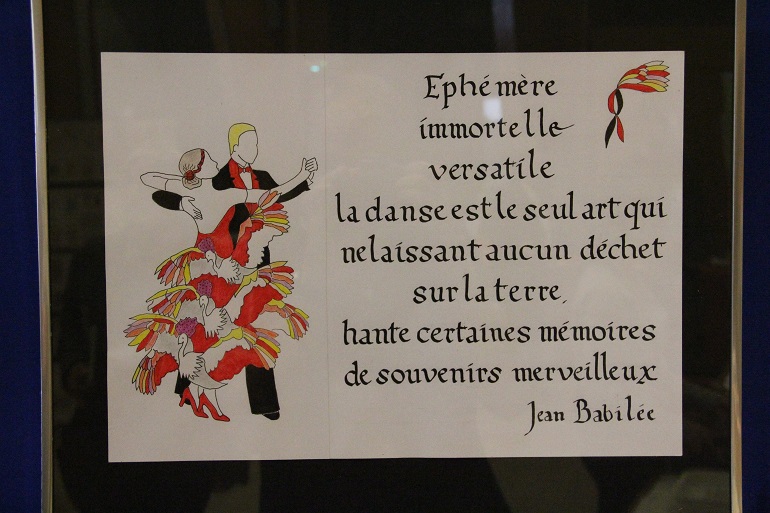 Ephémère
immortelle
versatile
la danse est le seul art qui
ne laissant aucun déchet
sur la terre,
hante certaines mémoires
de souvenirs merveilleux
Jean Babilée